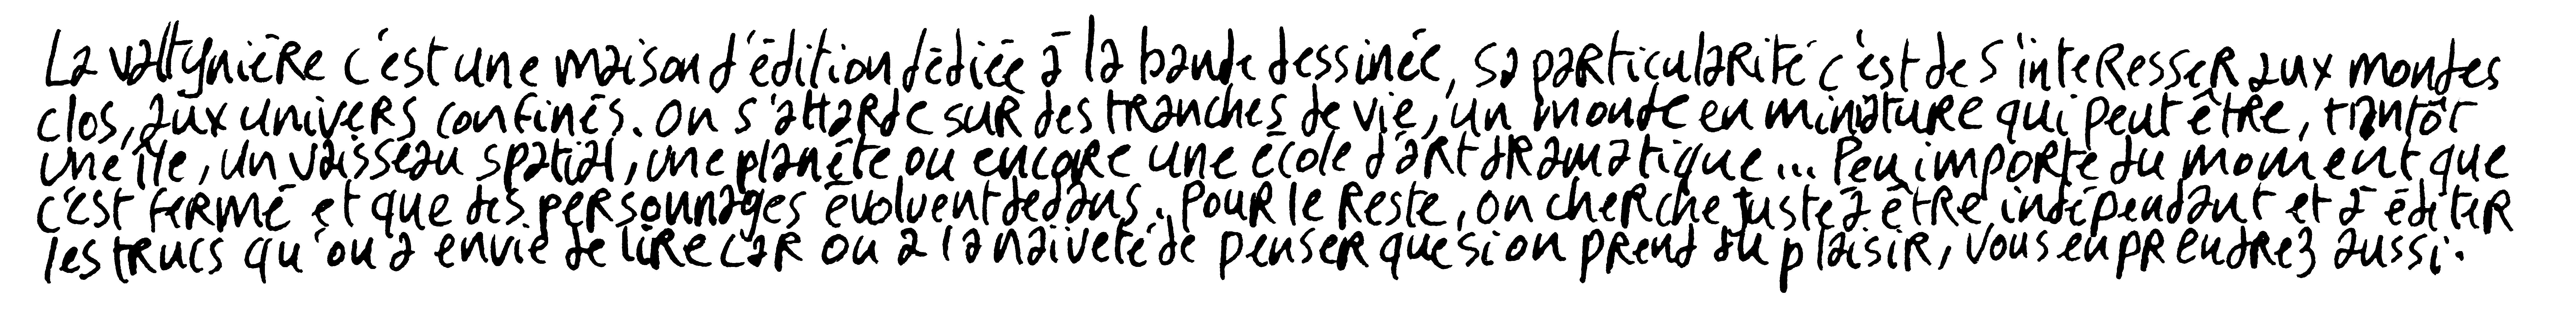 La valtynière c'est une maison d'édition dédiée à la bande dessinée, sa particularité c'est de s'interesser aux mondes
clos, aux univers confinés. On s'attarde sur des tranches de vie, un monde en miniature qui peut être, trantôt
une île, un vaisseau spatial, une planête ou encore une école d'art dramatique... Peu importe du moment que
c'est fermé et que des personnages évoluent dedans. Pour le reste, on cherche juste à être indépendant et à éditer
les trucs qu'on a envie de lire car on a la naïveté de penser que si on prend du plaisir, vous en prendrez aussi.